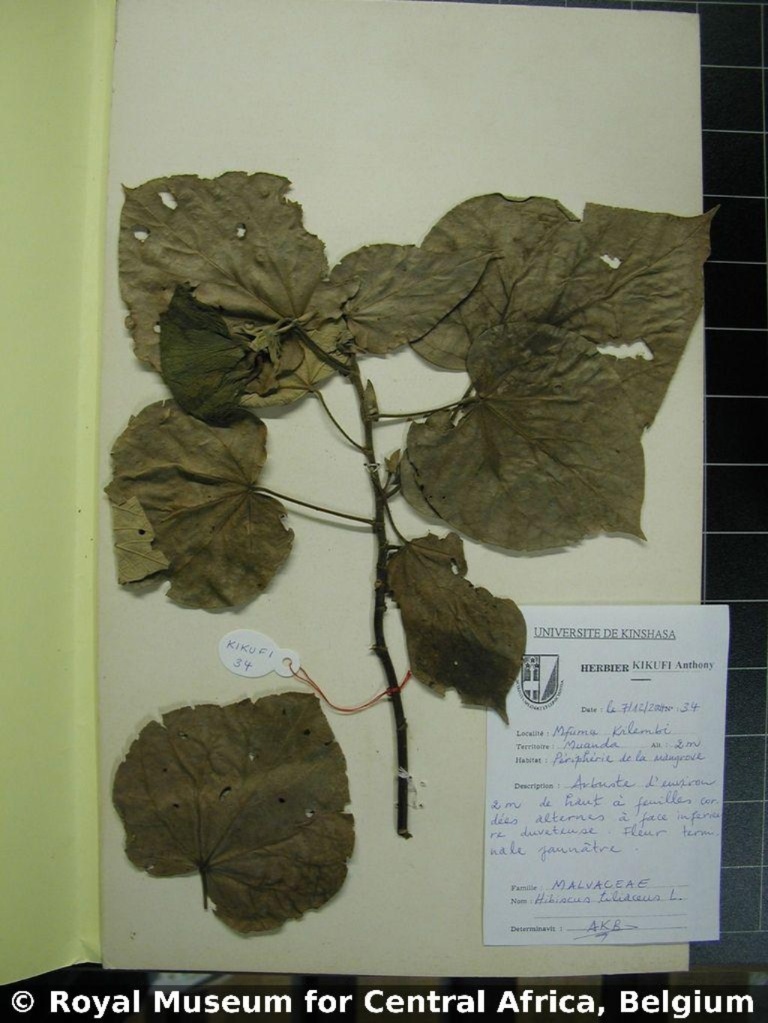 KIKUFI
34
UNIVERSITE DE KINSHASA
HERBIER KIKUFI Anthony
Date : le 7/12/2000 : 34
Localité : Mfuma Kilembi
Territoire : Muanda Alt : 2 m
Habitat : Périphérie de la mangrove
Description : Arbuste d'environ
2 m de haut à feuilles cor
dées alternes à face inferieu
re duveteuse. Fleur termi
nale jaunâtre.
Famille : MALVACEAE
Nom : Hibiscus tiliaceus L.
Determinavit : AKB
© Royal Museum for Central Africa, Belgium